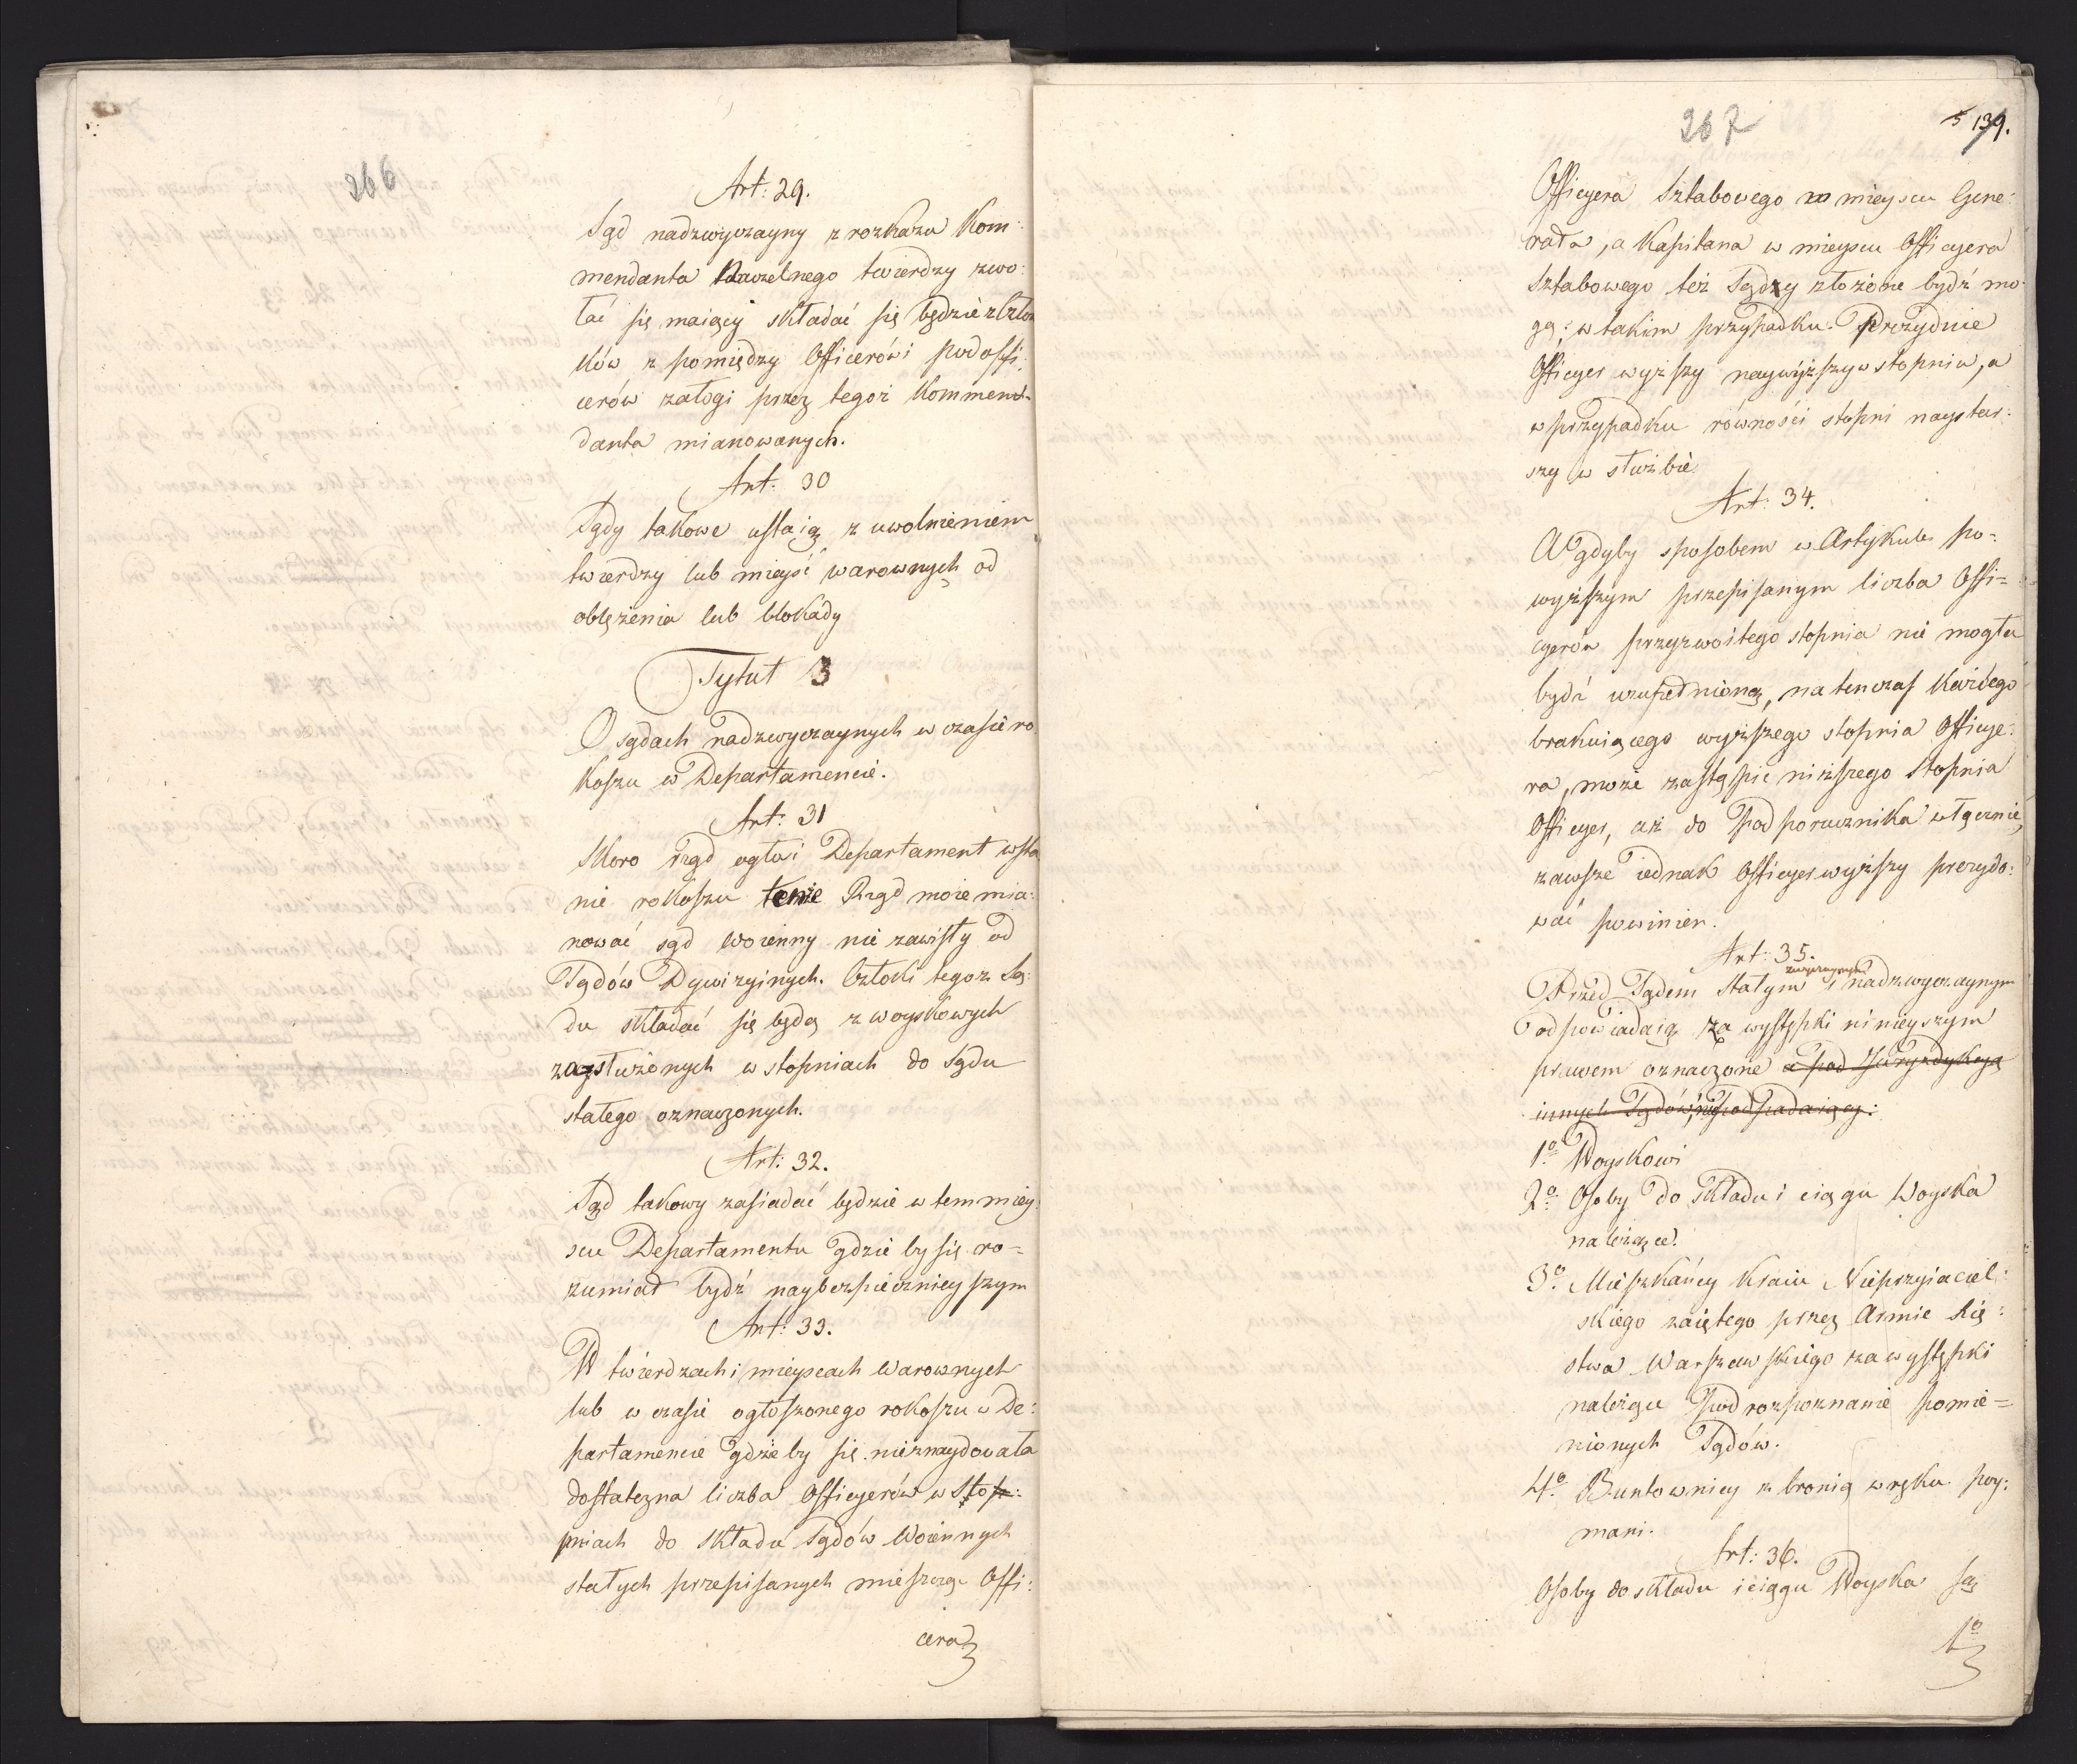 266
Art: 29.
Sąd nadzwyczayny z rozkazu Kom:
mendanta Naczelnego twierdzy zwo:
łać się maiący składać się będzie z Człon
ków z pomiędzy Officerów i podoffi:
cerów załogi przez tegoż Kommen-
danta mianowanych.
Art: 30
Sądy takowe ustaią z uwolnieniem
twierdzy lub mieysc warownych od
oblężenia lub blokady
Tytuł 3
O sądach nadzwyczaynych w czasie ro
koszu w Departamencie.
Art: 31
Skoro rząd ogłosi Departament w sta
nie rokoszu tenże Rząd może mia:
nować sąd woienny nie zawisły od
Sądów Dywizyinych. Członki tegoż Są:
du składać się będą z woyskowych
zasłużonych w stopniach do Sądu
stałego oznaczonych.
Art: 32.
Sąd takowy zasiadać będzie w tem miey:
scu Departamentu gdzie by się ro=
zumiał bydź naybezpiecznieyszym
Art: 33.
W twierdzach i mieyscach warownych
lub w czasie ogłoszonego rokoszu w De:
partamencie gdzieby się nieznaydowała
dostateczna liczba Officyerów w Sto:
pniach do składu Sądów Woiennych
stałych przepisanych mieszczą Offi:
cera
267
5 139.
Officyera Sztabowego w mieyscu Gene:
rała, a Kapitana w mieyscu Officyera
Sztabowego też Sądzy złożone bydź mo:
gą; w takim przypadku Prezyduie
Officyer wyższy naywyższy w stopniu, a
w przypadku równości stopni naystar:
szy w służbie
Art: 34.
A gdyby sposobem w Artykule po:
wyższym przepisanym liczba Offi=
cyerów przyzwoitego stopnia nie mogła
bydź uzupełnioną, na tenczas każdego
brakuiącego wyższego stopnia Officye:
ra, może zastąpić niższego stopnia
Officyer, aż do Podporucznika włącznie,
zawsze iednak Officyer wyższy prezydo:
wać powinien.
Art: 35.
Przed Sądem stałym i nadzwyczaynym
odpowiadaią za występki ninieyszym
prawem oznaczone a pod Juryzdykcyą
innych Sądów nie podpadaiący:
1o Woyskowi
2o Osoby do składu i ciągu Woyska
należące.
3o Mieszkańcy kraiu Nieprzyiaciel:
skiego zaiętego przez Armie Xię:
stwa Warszawskiego za występki
należące pod rozpoznanie pomie=
nionych Sądów.
4o Buntownicy z bronią w ręku poy:
mani.
Art: 36.
Osoby do składu i ciągu Woyska są
1o